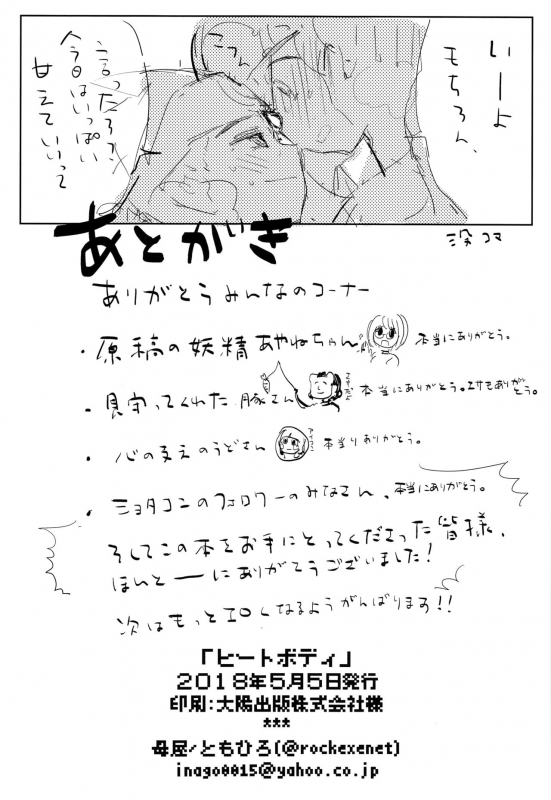 いーよ
もちろん、
こつん
言ったろ?
今日はいっぱい
甘えていいって
没コマ
あとがき
ありがとうみんなのコーナー
・原稿の妖精あやねちゃん 本当にありがとう。
・見守ってくれた豚さん 本当にありがとう。エサもありがとう。
・心の支えのうどさん 本当にありがとう。
・ショタコンのフォロワーのみなさん、本当にありがとう。
そしてこの本をお手にとってくださった皆様、
ほんとーーにありがとうございました!
次はもっとエロくなるようがんばります!!
「ヒートボディ」
2018年5月5日発行
印刷:大陽出版株式会社様
***
母屋/ともひろ(@rockexenet)
inago0015@yahoo.co.jp